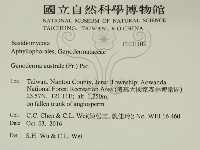 國立自然科學博物館
NATIONAL MUSEUM OF NATURAL SCIENCE
TAICHUNG, TAIWAN, R.O.CHINA
Basidiomycota
Aphyllophorales, Ganodermataceae
Ganoderma australe (Fr.) Pat.
Loc.: Taiwan, Nantou County, Jenai Township, Aowanda
National Forest Recreation Area
23.57N, 121.11E; alt. 1,250m,
on fallen trunk of angiosperm
Coll.: C.C. Chen & C.L. Wei No. WEI 16-460
Date: Oct. 03, 2016
Det.: S.H. Wu & C.L. Wei